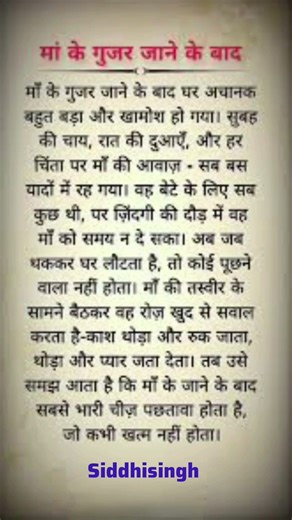 मां के गुजर जाने के बाद
माँ के गुजर जाने के बाद घर अचानक
बहुत बड़ा और खामोश हो गया। सुबह
की चाय, रात की दुआएँ, और हर
चिंता पर माँ की आवाज़ - सब बस
यादों में रह गया। वह बेटे के लिए सब
कुछ थी, पर ज़िंदगी की दौड़ में वह
माँ को समय न दे सका। अब जब
थककर घर लौटता है, तो कोई पूछने
वाला नहीं होता। माँ की तस्वीर के
सामने बैठकर वह रोज़ खुद से सवाल
करता है-काश थोड़ा और रुक जाता,
थोड़ा और प्यार जता देता। तब उसे
समझ आता है कि माँ के जाने के बाद
सबसे भारी चीज़ पछतावा होता है,
जो कभी खत्म नहीं होता।
Siddhisingh